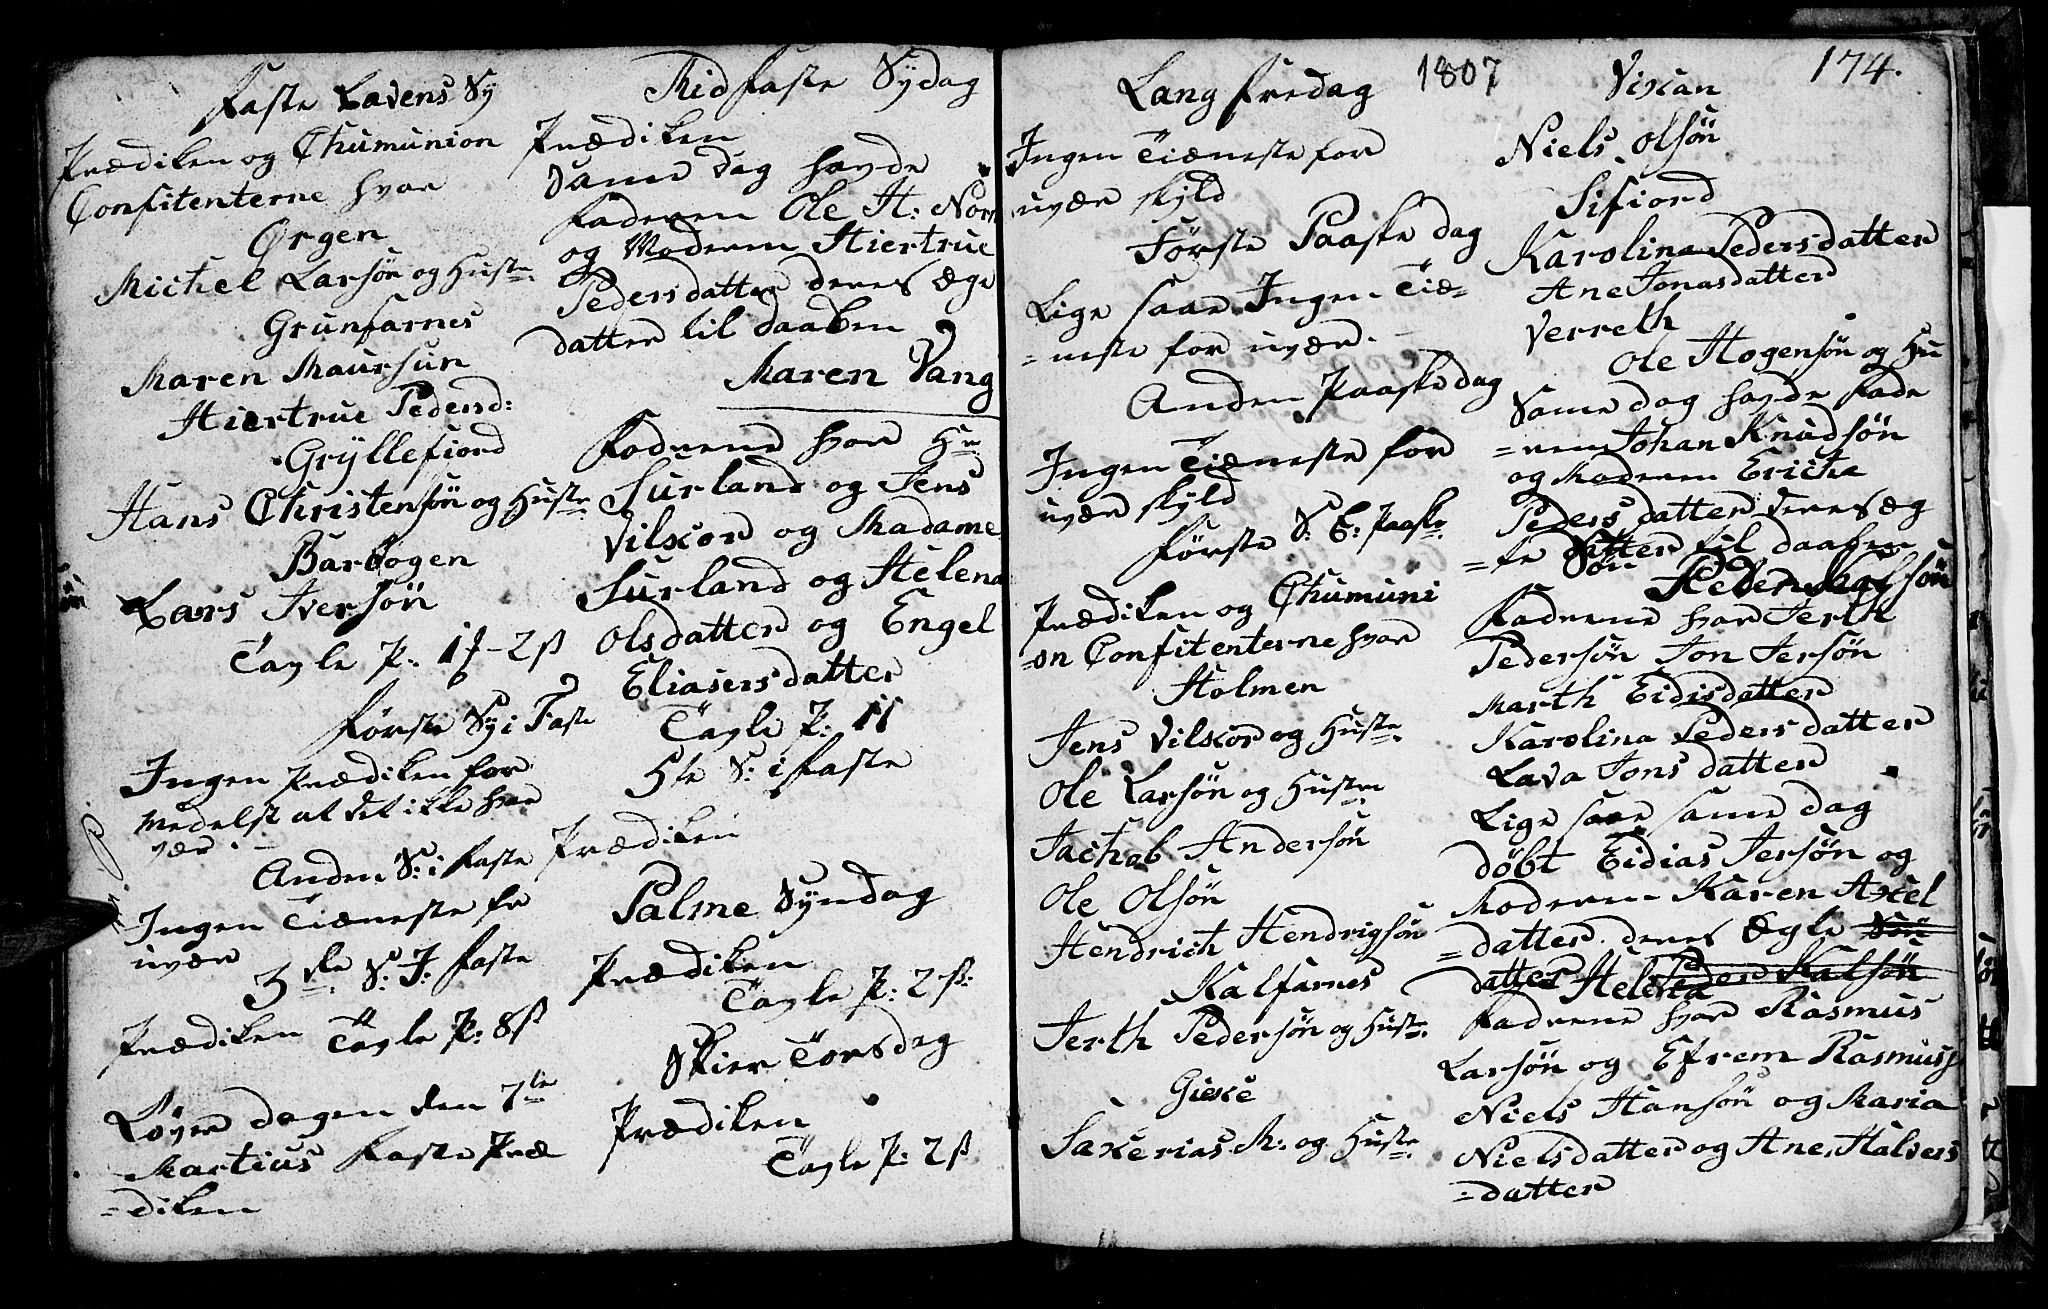 Faste Lavens Sy
Prædiken og Chumunion
Confitenterne hvar
Ørgen
Michel Larsøn og Hust:
Grunfarnes
Maren Maursun
Hiertrue Pedersd:
Gryllefiord
Hans Christensøn og Huste
Barbogen
Lars Iversøn
Tavle P: 2 ß
Første Sy i Faste
Ingen Prædiken for
medelst at det ikke hvar
vær
Anden S: i Faste
Ingen Tiæneste for
uvær
3de S: I: Faste
Prædiken Tavle P: 8 ß
Løverdagen den 7de
Martius Faste Præ
=diken
Midfaste Sydag
Prædiken
Same dag havde
Faderen Ole H: Nor
og Moderen Hiertrue
Pedersdatter deres Ægte
datter til daaben
Maren Vang
Fadrene hvar H:
Surland og Jens
Vilscor og Madame
Surland og Helena
Olsdatter og Engel
Eliasersdatter
Tavle P: 11
5te S: i Faste
Prædiken
Palme Syndag
Prædiken
Tavle P: 2 ß:
Skier Torsdag
Prædiken
Tavle P: 2 ß
1807
174.
Lang Fredag
Ingen Tiæneste for
uvær skyld
Første Paaske dag
Lige saae Ingen Tiæ=
=neste for uvær.
Anden Paaske dag
Ingen Tiæneste for
uvær skyld
Første S: E: Paaske
Prædiken og Chumuni
=on Confitenterne hvar
Holmen
Jens Vilscor og Huste
Ole Larsøn og Husten
Jachob Andersøn
Ole Olsøn
Hendrich Hendrigsøn
Kalfarnes
Jerth Pedersøn og Hust:
Giesce
Saxerias M: og Huste
Vixan
Niels Olsøn
Sifiord
Karolina Pedersdatter
Ane Jonasdatter
Verreth
Ole Hogensøn og Hu
Same dag havde Fade
=ren Johan Knudsøn
og Moderen Eriche
Pedersdatter deres Æg
=te Søn til daaben
Peder
Fadrene hvar Jerth
Pedersøn Jon Jersøn
Marth Eidisdatter
Karolina Pedersdatter
Lava Jonsdatter
Lige saae same dag
døbt Eidias Jersøn og
Moderen Karen Axel
=datter deres Ægte Søn
datter Helena Peder Kalsøn
Fadrene hvar Rasmus
Larsøn og Efrem Rasmuss
Niels Hansøn og Maria
Nielsdatter og Ane Halvers
=datter